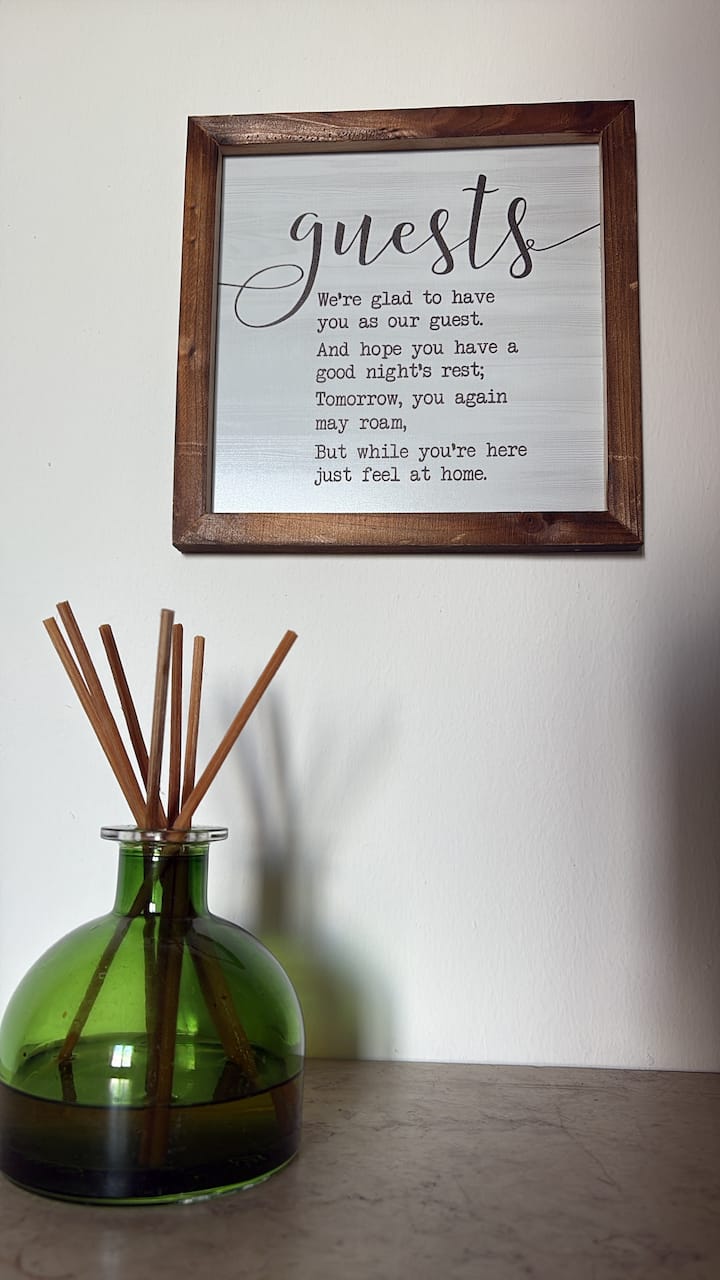 guests
We're glad to have
you as our guest.
And hope you have a
good night's rest;
Tomorrow, you again
may roam,
But while you're here
just feel at home.